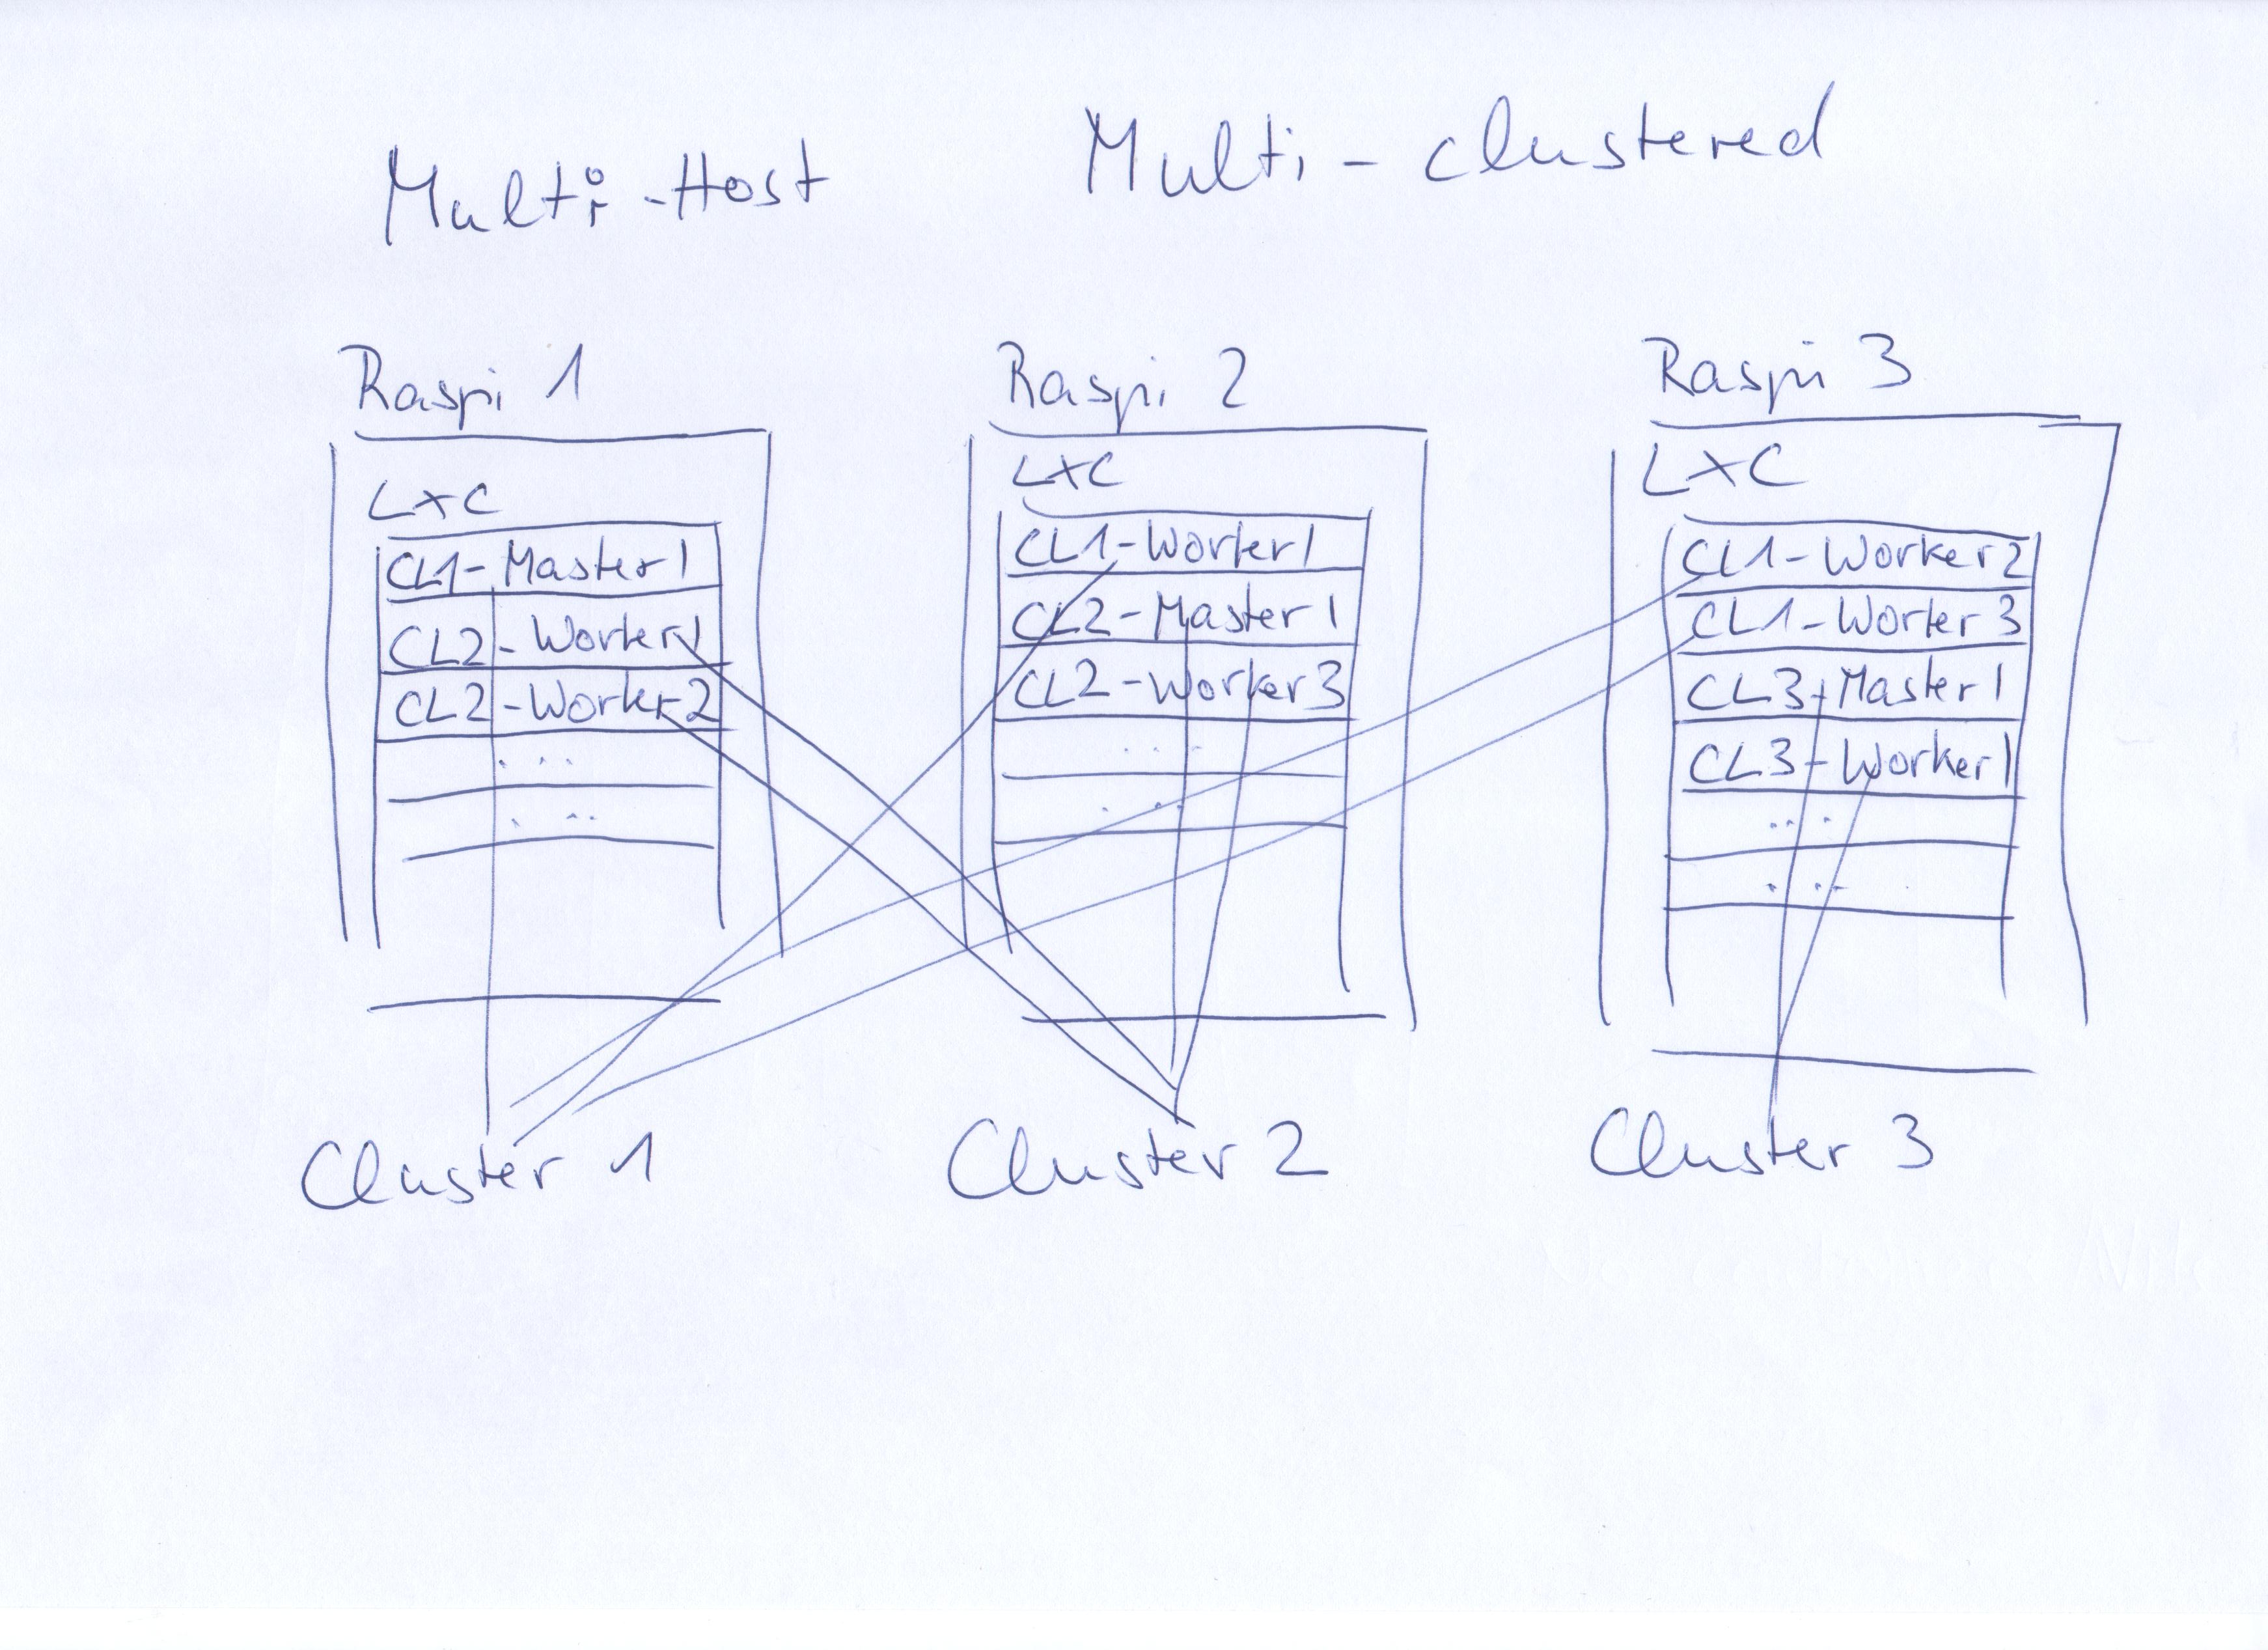 Multi-Host Multi-clustered
Raspi 1
LXC
CL1-Master1
CL2-Worker1
CL2-Worker2
...
...
Cluster 1
Raspi 2
LXC
CL1-Worker1
CL2-Master1
CL2-Worker3
...
...
Cluster 2
Raspi 3
LXC
CL1-Worker2
CL1-Worker3
CL3-Master1
CL3-Worker1
...
...
Cluster 3